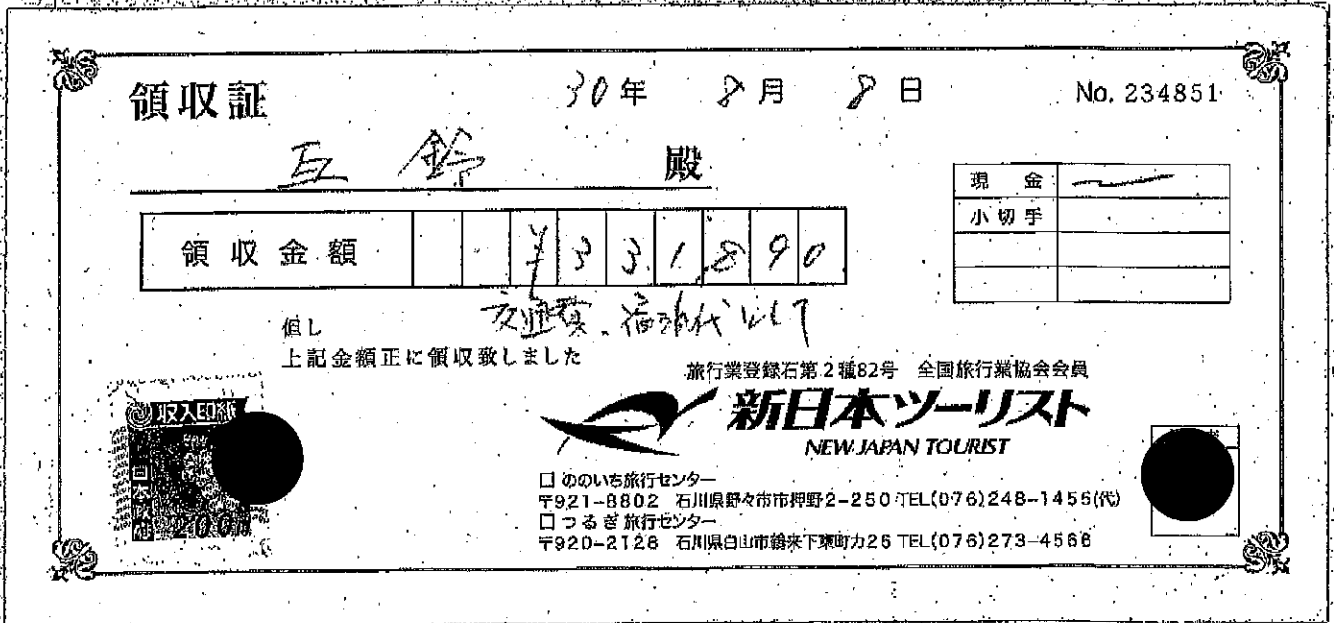 領収証 30年 8月 8日 No. 234851
五鈴 殿
現金
小切手
領収金額 ¥331,890
但し 交通費、宿泊代として
上記金額正に領収致しました
旅行業登録石第2種82号 全国旅行業協会会員
新日本ツーリスト
NEW JAPAN TOURIST
収入印紙
日本
200
□ ののいち旅行センター
〒921-8802 石川県野々市市押野2-250 TEL(076)248-1456(代)
□ つるぎ旅行センター
〒920-2128 石川県白山市鶴来下東町カ26 TEL(076)273-4566